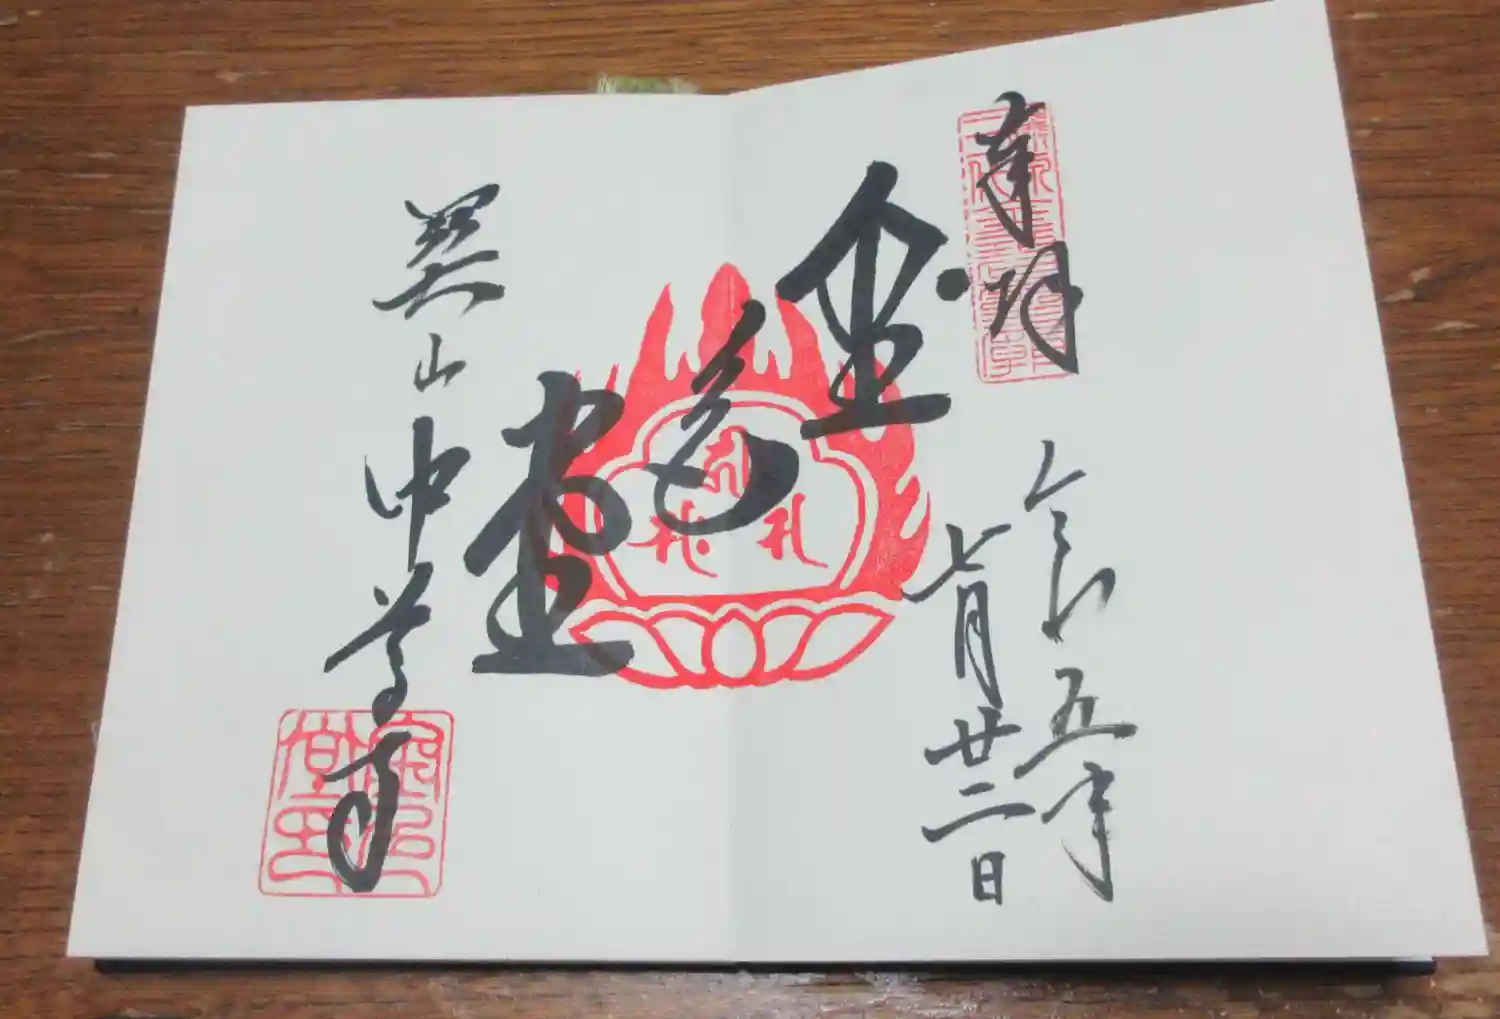 奉拝
令和五年
七月廿二日
金色堂
関山中尊寺